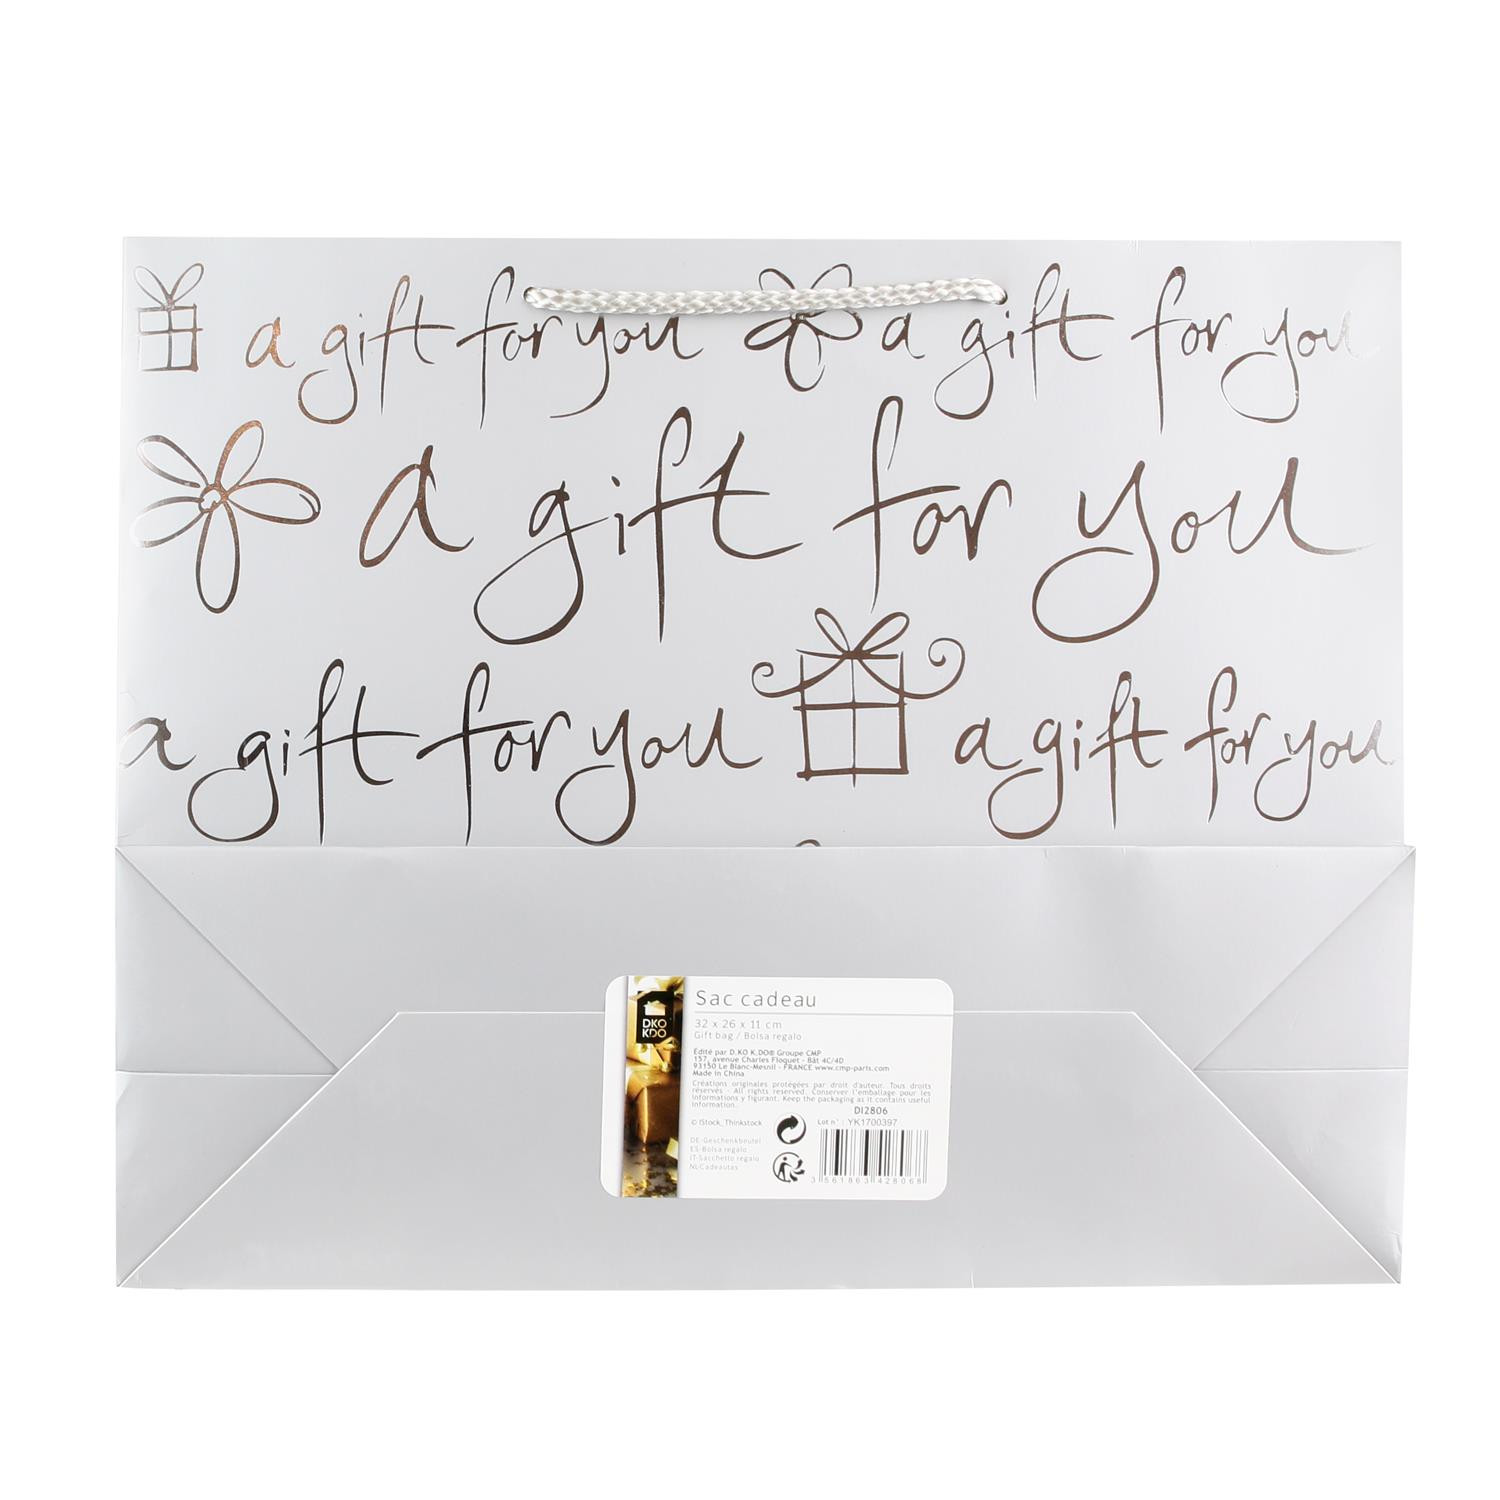 a gift for you a gift for you
a gift for you
a gift for you a gift for you
DKO
KDO
Sac cadeau
32 x 26 x 11 cm
Gift bag / Bolsa regalo
Édité par D.KO K.DO® Groupe CMP
157, avenue Charles Floquet - Bât 4C/4D
93150 Le Blanc-Mesnil - FRANCE www.cmp-paris.com
Made in China
Créations originales protégées par droit d'auteur. Tous droits
réservés - All rights reserved. Conserver l'emballage pour les
informations y figurant. Keep the packaging as it contains useful
information.
DI2806
© iStock_Thinkstock
Lot n° : YK1700397
DE-Geschenkbeutel
ES-Bolsa regalo
IT-Sacchetto regalo
NL-Cadeautas
3 561863 428068